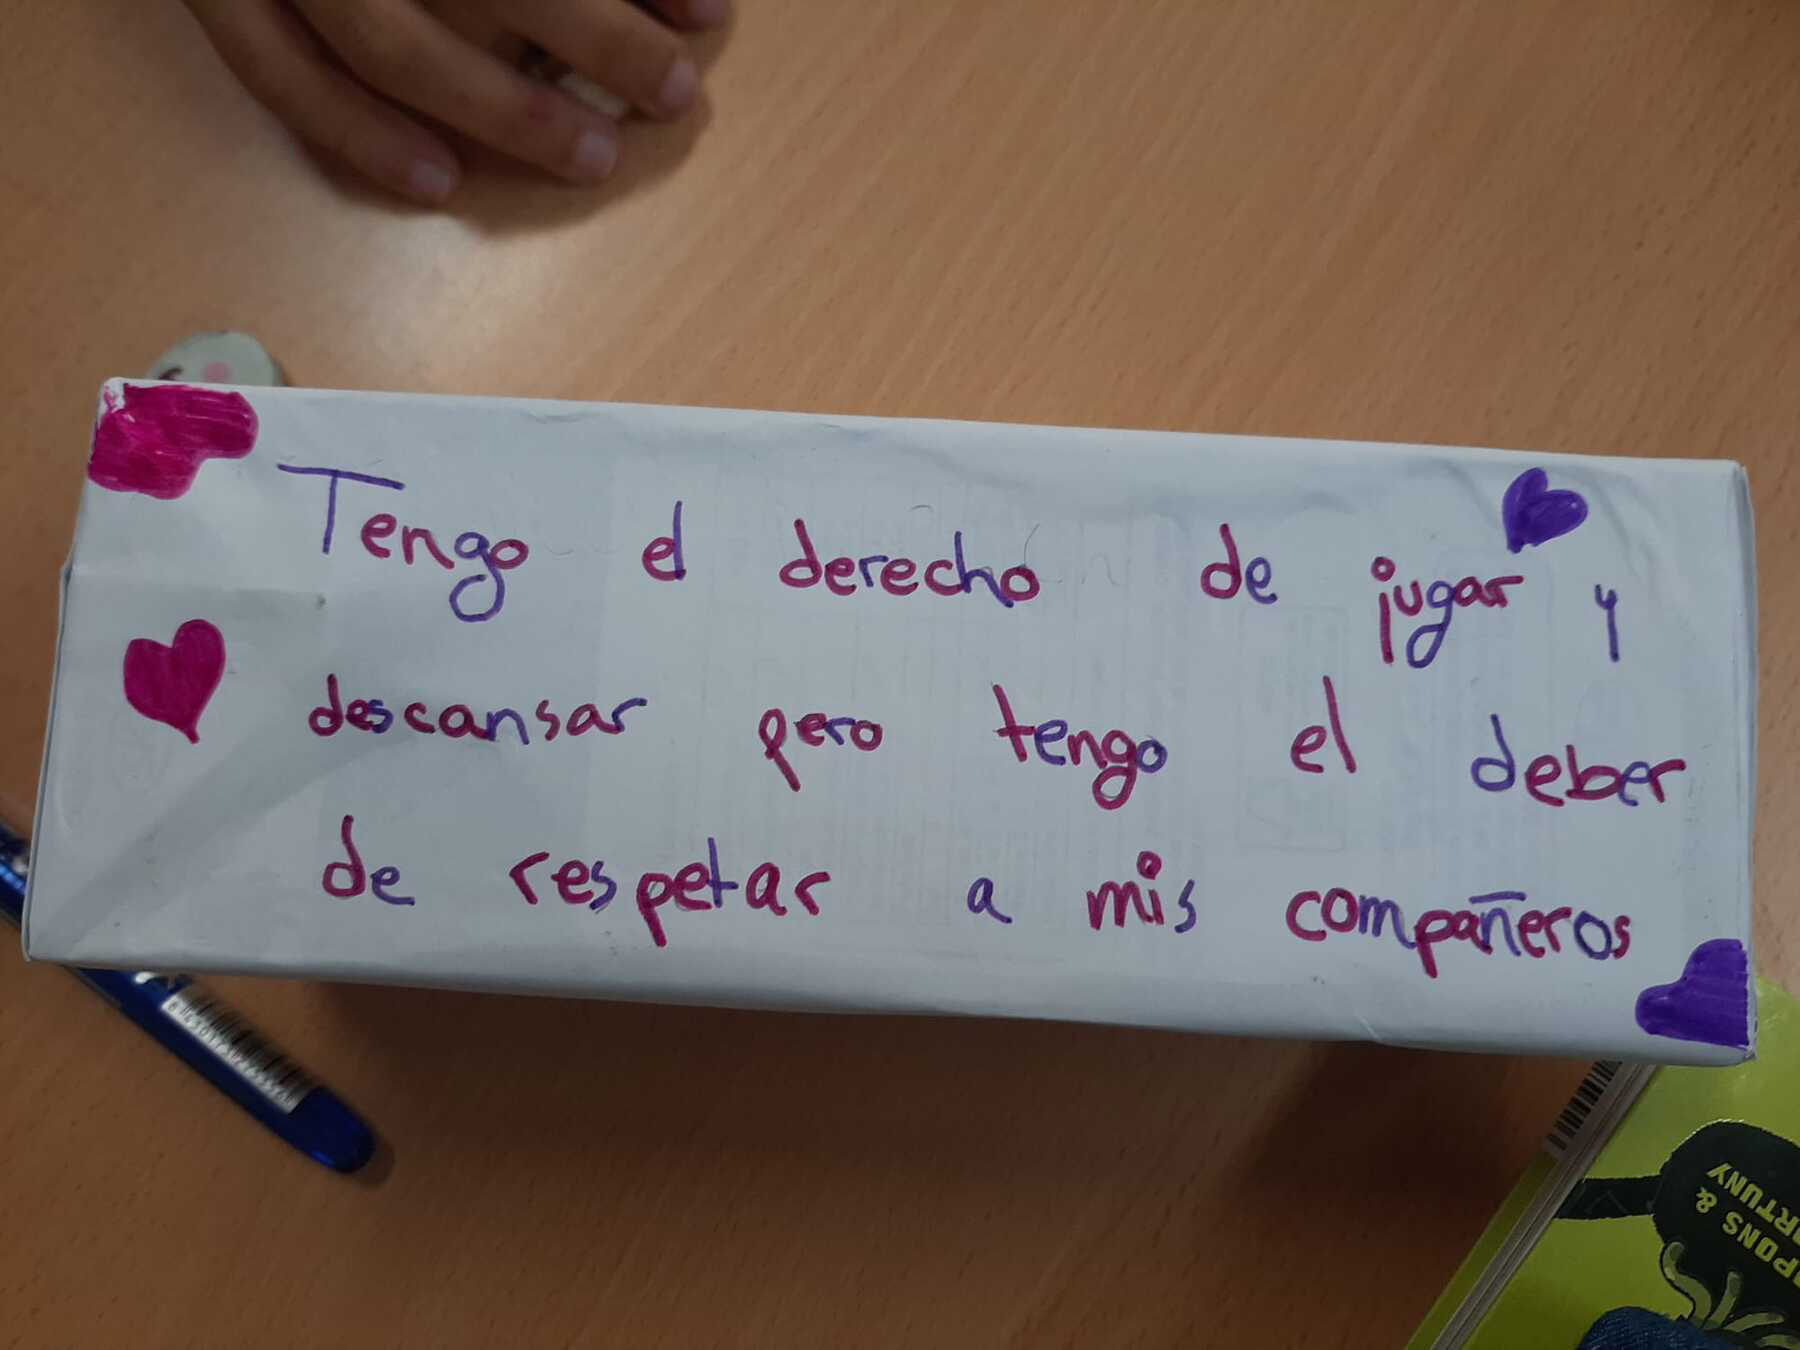 Tengo el derecho de jugar y
descansar pero tengo el deber
de respetar a mis compañeros